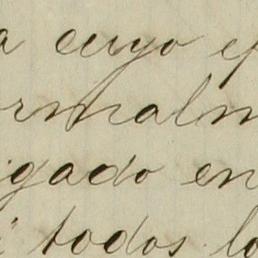 a cuyo ef
ormalm
igado en
todos lo